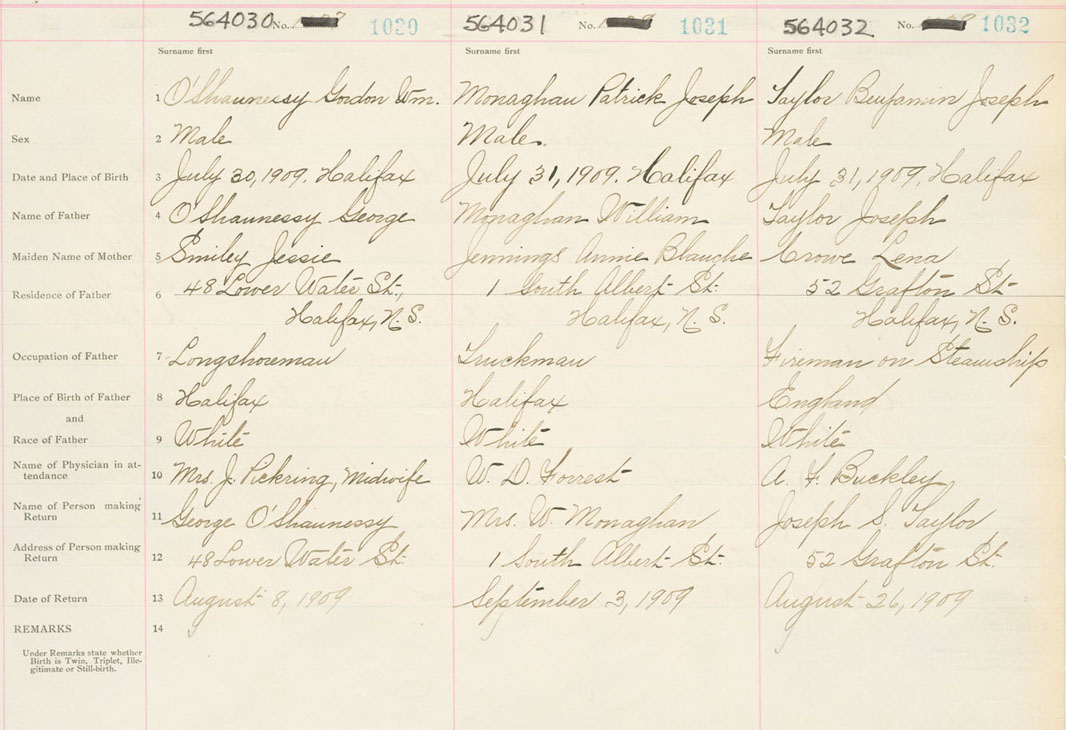 564030 No. 1030 564031 No. 1031 564032 No. 1032
Surname first Surname first Surname first
Name 1 O'Shaunessy Gordon Wm. Monaghan Patrick Joseph Taylor Benjamin Joseph
Sex 2 Male Male. Male
Date and Place of Birth 3 July 30, 1909. Halifax July 31, 1909. Halifax July 31, 1909. Halifax
Name of Father 4 O'Shaunessy George Monaghan William Taylor Joseph
Maiden Name of Mother 5 Smiley Jessie Jennings Annie Blanche Crowe Lena
Residence of Father 6 48 Lower Water St., 1 South Albert St. 52 Grafton St.
Halifax, N. S. Halifax, N. S. Halifax, N. S.
Occupation of Father 7 Longshoreman Truckman Fireman on Steamship
Place of Birth of Father 8 Halifax Halifax England
and
Race of Father 9 White White White
Name of Physician in at-
tendance 10 Mrs. J. Pickering, Midwife W. D. Forrest A. F. Buckley
Name of Person making
Return 11 George O'Shaunessy Mrs. W. Monaghan Joseph S. Taylor
Address of Person making
Return 12 48 Lower Water St. 1 South Albert St. 52 Grafton St.
Date of Return 13 August 8, 1909 September 3, 1909 August 26, 1909
REMARKS 14
Under Remarks state whether
Birth is Twin, Triplet, Ille-
gitimate or Still-birth.